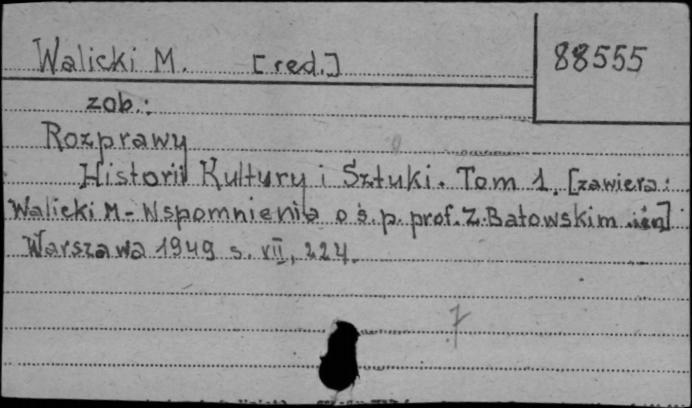 Walicki M. [red.]
88555
zob.:
Rozprawy
Historii Kultury i Sztuki. Tom 1. [zawiera:
Walicki M - Wspomnienia o ś.p. prof. Z. Batowskim i in]
Warszawa 1949 s. VII, 224.
7